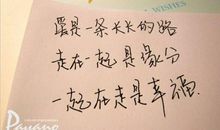 WISHES
爱是一条长长的路
走在一起是缘分
一起在走是幸福
Payano